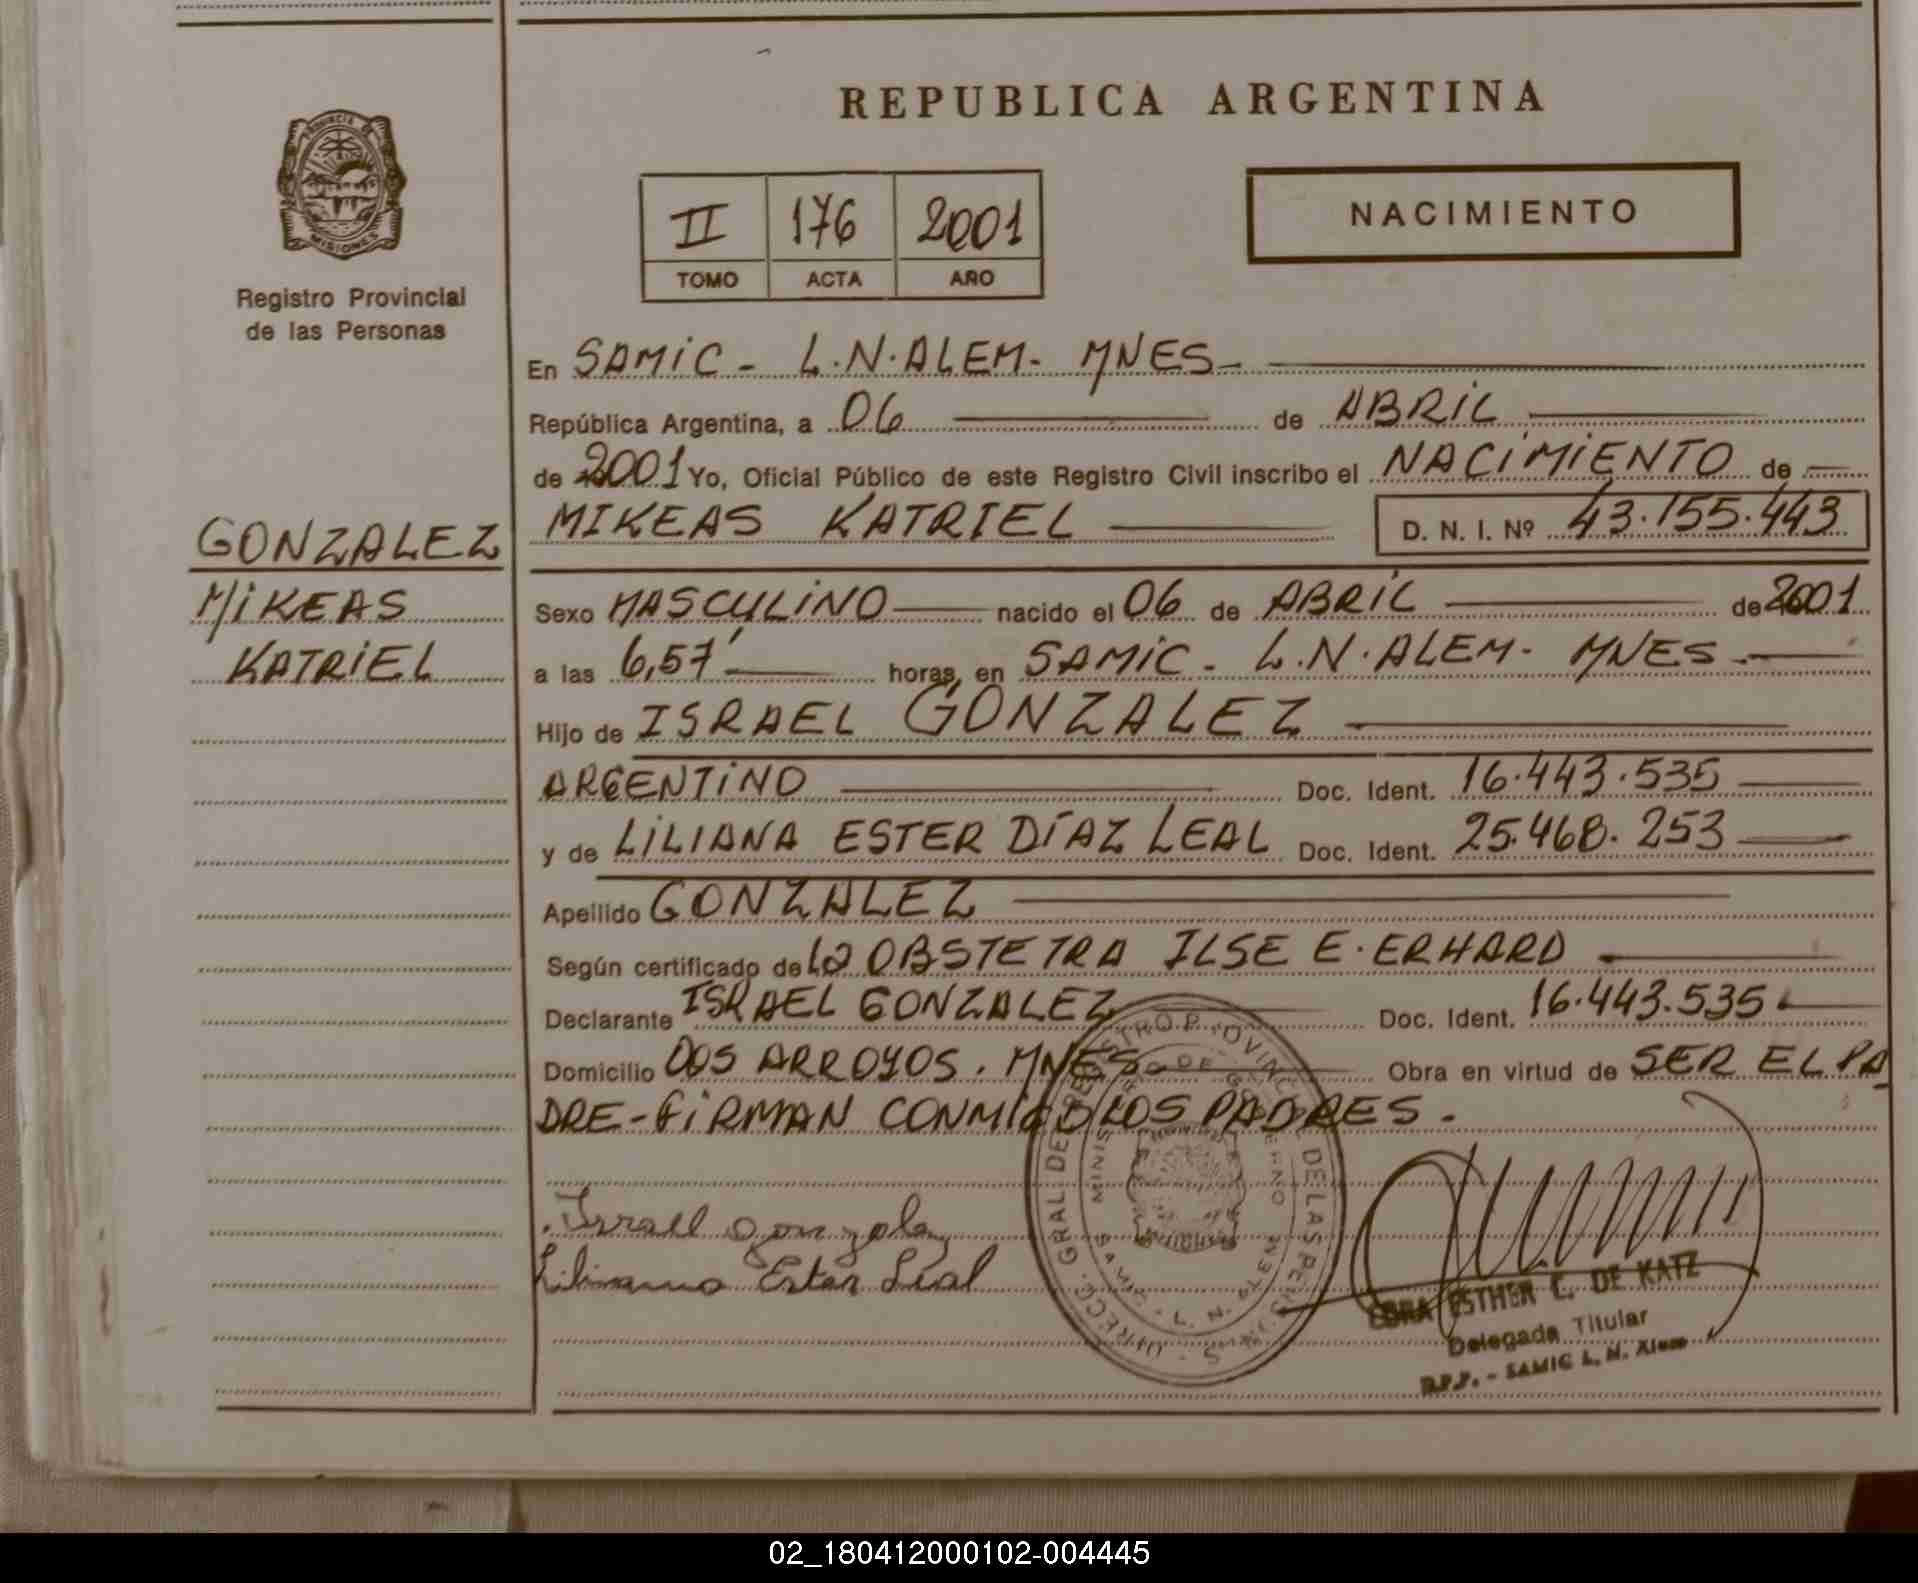 REPUBLICA ARGENTINA
PROVINCIA DE
MISIONES
Registro Provincial
de las Personas
II 176 2001
TOMO ACTA AÑO
NACIMIENTO
En SAMIC - L.N.ALEM- MNES-
República Argentina, a 06 de ABRIL
de 2001 Yo, Oficial Público de este Registro Civil inscribo el NACIMIENTO de
MIKEAS KATRIEL D. N. I. Nº 43.155.443
GONZALEZ
MIKEAS
KATRIEL
Sexo MASCULINO nacido el 06 de ABRIL de 2001
a las 6,57' horas, en SAMIC - L.N.ALEM- MNES-
Hijo de ISRAEL GONZALEZ
ARGENTINO Doc. Ident. 16.443.535
y de LILIANA ESTER DÍAZ LEAL Doc. Ident. 25.468.253
Apellido GONZALEZ
Según certificado de la OBSTETRA ILSE E. ERHARD
Declarante ISRAEL GONZALEZ Doc. Ident. 16.443.535
Domicilio DOS ARROYOS. MNES- Obra en virtud de SER EL PA
DRE-FIRMAN CONMIGO LOS PADRES.
Israel Gonzalez
Liliana Ester Leal
ESTHER C. DE KATZ
Delegada Titular
R.P.P. - SAMIC L. N. Alem
02_180412000102-004445